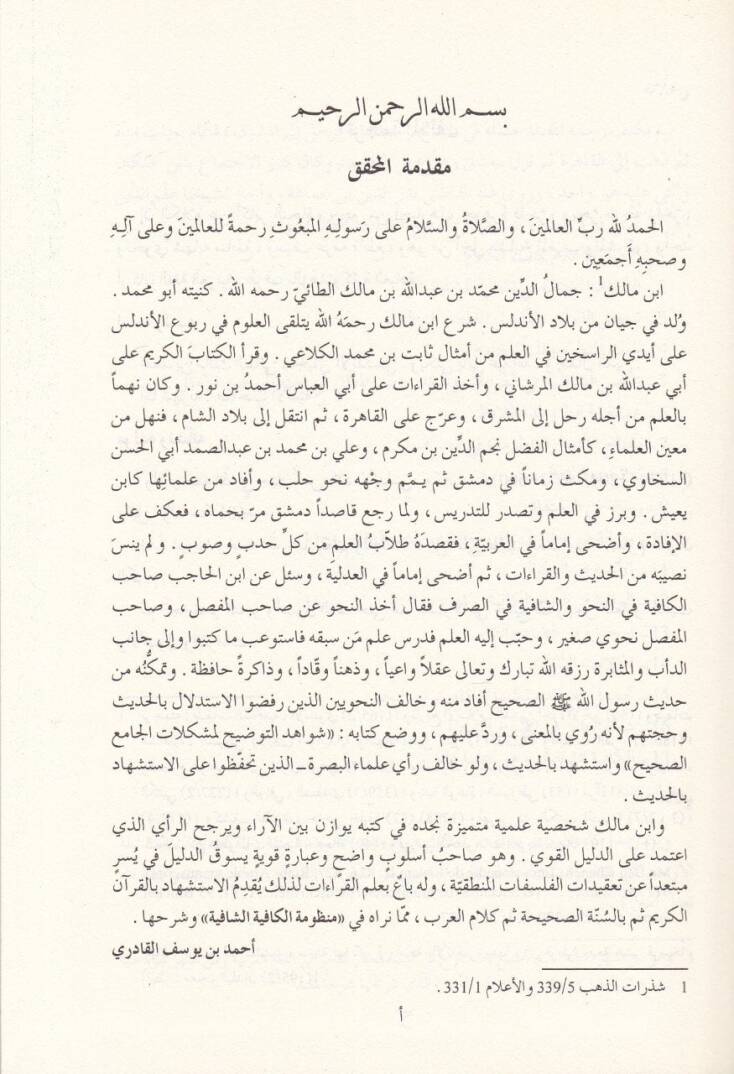 بسم الله الرحمن الرحيم
مقدمة المحقق
الحمدُ لله ربِّ العالمينَ، والصَّلاةُ والسَّلامُ على رَسولِهِ المبعُوثِ رحمةً للعالمينَ وعلى آلِهِ
وصحبِهِ أَجمَعِين .
ابن مالك1 : جمالُ الدِّين محمّد بن عبدالله بن مالك الطائيّ رحمه الله . كنيته أبو محمد .
وُلد في جيان من بلاد الأندلس . شرع ابن مالك رحمَهُ الله يتلقى العلوم في ربوع الأندلس
على أيدي الراسخين في العلم من أمثال ثابت بن محمد الكلاعي . وقرأ الكتابَ الكريم على
أبي عبدالله بن مالك المرشاني، وأخذ القراءات على أبي العباس أحمدُ بن نور . وكان نهماً
بالعلم من أجله رحل إلى المشرق، وعرّج على القاهرة، ثم انتقل إلى بلاد الشام، فنهل من
معين العلماءِ، كأمثال الفضل نجم الدِّين بن مكرم، وعلي بن محمد بن عبدالصمد أبي الحسن
السخاوي، ومكث زماناً في دمشق ثم يمَّم وجْهه نحو حلب، وأفاد من علمائِها كابن
يعيش . وبرز في العلم وتصدر للتدريس، ولما رجع قاصداً دمشق مرّ بحماه، فعكف على
الإفادة، وأضحى إماماً في العربيّةِ، فقصدَهُ طلاّبُ العلمِ من كلِّ حدبٍ وصوبٍ . ولم ينسَ
نصيبَه من الحديث والقراءات، ثم أضحى إماماً في العدلية، وسئل عن ابن الحاجب صاحب
الكافية في النحو والشافية في الصرف فقال أخذ النحو عن صاحب المفصل، وصاحب
المفصل نحوي صغير، وحبّب إليه العلم فدرس علم مَن سبقه فاستوعب ما كتبوا وإلى جانب
الدأب والمثابرة رزقه الله تبارك وتعالى عقلاً واعياً، وذهناً وقّاداً، وذاكرةً حافظة . وتمكنُّه من
حديث رسول الله ﷺ الصحيح أفاد منه وخالف النحويين الذين رفضوا الاستدلال بالحديث
وحجتهم لأنه رُوي بالمعنى، وردَّ عليهم، ووضع كتابه : «شواهد التوضيح لمشكلات الجامع
الصحيح» واستشهد بالحديث، ولو خالف رأي علماء البصرة ــ الذين تحفّظوا على الاستشهاد
بالحديث .
وابن مالك شخصية علمية متميزة نجده في كتبه يوازن بين الآراء ويرجح الرأي الذي
اعتمد على الدليل القوي . وهو صاحبُ أسلوبٍ واضحٍ وعبارةٍ قويةٍ يسوقُ الدليلَ في يُسرٍ
مبتعداً عن تعقيدات الفلسفات المنطقيّة، وله باعٌ بعلم القراءات لذلك يُقدِمُ الاستشهاد بالقرآن
الكريم ثم بالسُنّة الصحيحة ثم كلام العرب، ممّا نراه في «منظومة الكافية الشافية» وشرحها .
أحمد بن يوسف القادري
1 شذرات الذهب 339/5 والأعلام 331/1 .
أ